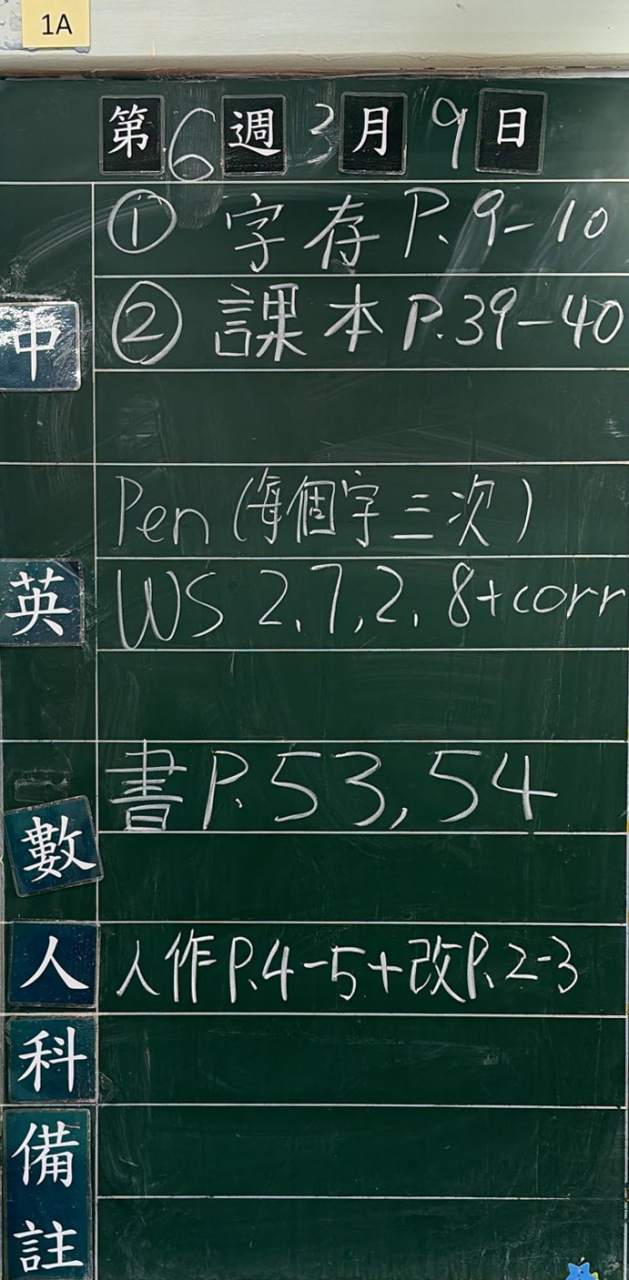 1A
第6週3月9日
中
① 字存 P.9-10
② 課本 P.39-40
英
Pen (每個字三次)
WS 2.7,2.8+corr
數
書P.53,54
人
人作P.4-5+改P.2-3
科
備註